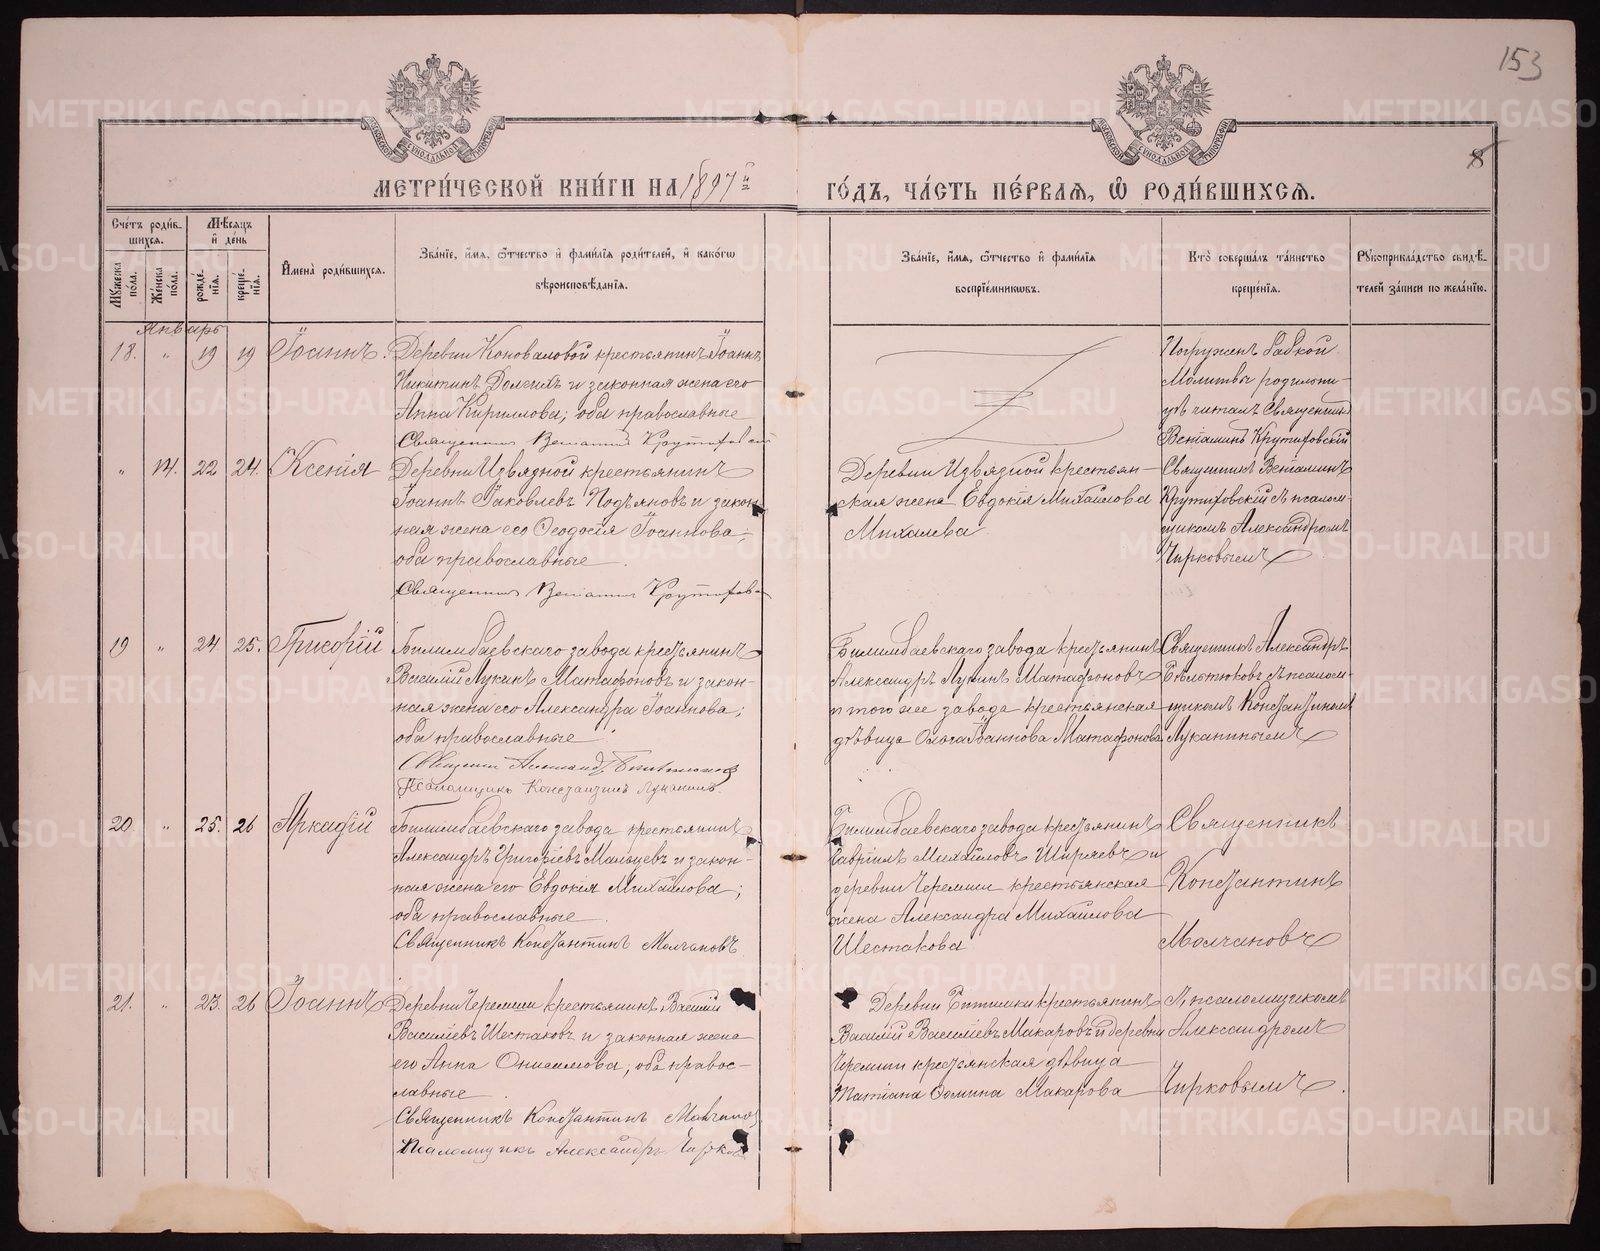 153
8
МЕТРИ́ЧЕСКОЙ КНИ́ГИ НА 1897й
ГО́ДЪ, ЧА́СТЬ ПЕ́РВАЯ, Ѽ РОДИ́ВШИХСЯ.
Сче́тъ роди́в-
шихся.
Му́жеска по́ла.
Же́нска по́ла.
Мѣ́сяцъ и де́нь
рожде́-
нїя.
креще́-
нїя.
Имена̀ роди́вшихся.
Зва́нїе, и́мя, ѻ́тчество и фами́лїя роди́телей, и како́гѡ
вѣроисповѣ́данїя.
Зва́нїе, и́мя, ѻ́тчество и фами́лїя
воспрїе́мникѡвъ.
Кто̀ соверша́лъ та́инство
креще́нїя.
Рꙋкоприкла́дство свидѣ́-
телей за́писи по жела́нїю.
Январь
18. " 19 19 Іоаннъ.
Деревни Коноваловой крестьянинъ Іоаннъ
Никитинъ Долгихъ и законная жена его
Анна Кириллова; оба православные
Священникъ Веніаминъ Крутиховскій
Погруженъ бабкой
Молитвы родильни-
цѣ читалъ Священникъ
Веніаминъ Крутиховскій
" 14. 22 24. Ксенія
Деревни Извязной крестьянинъ
Іоаннъ Іаковлевъ Подъяновъ и закон-
ная жена его Ѳеодосія Іоаннова;
оба православные
Священникъ Веніаминъ Крутихов
Деревни Извязной крестьян-
ская жена Евдокія Михайлова
Михалева
Священникъ Веніаминъ
Крутиховскій съ псалом-
щикомъ Александромъ
Чирковымъ
19 " 24 25. Григорій
Билимбаевскаго завода крестьянинъ
Василій Лукинъ Матафоновъ и закон-
ная жена его Александра Іоаннова;
оба православные
Священникъ Александръ
Псаломщикъ Константинъ Луканинъ.
Билимбаевскаго завода крестьянинъ
Александръ Лукинъ Матафоновъ
и того же завода крестьянская
дѣвица Ольга Іоаннова Матафонова
Священникъ Александръ
съ псалом-
щикомъ Константиномъ
Луканинымъ
20. " 25. 26 Аркадій
Билимбаевскаго завода крестьянинъ
Александръ Григоріевъ Мальцевъ и закон-
ная жена его Евдокія Михайлова;
оба православные
Священникъ Константинъ Молчановъ
Билимбаевскаго завода крестьянинъ
Гавріилъ Михайловъ Ширяевъ и
деревни Черемши крестьянская
жена Александра Михайлова
Шестакова
Священникъ
Константинъ
Молчановъ
21. " 23. 26 Іоаннъ
Деревни Черемши крестьянинъ Василій
Василіевъ Шестаковъ и законная жена
его Анна Онисимова; оба правос-
лавные
Священникъ Константинъ Молчановъ
Псаломщикъ Александръ Чирков
Деревни крестьянинъ
Василій Василіевъ Макаровъ и деревни
Черемши крестьянская дѣвица
Татіана Ѳомина Макарова
съ псаломщикомъ
Александромъ
Чирковымъ.